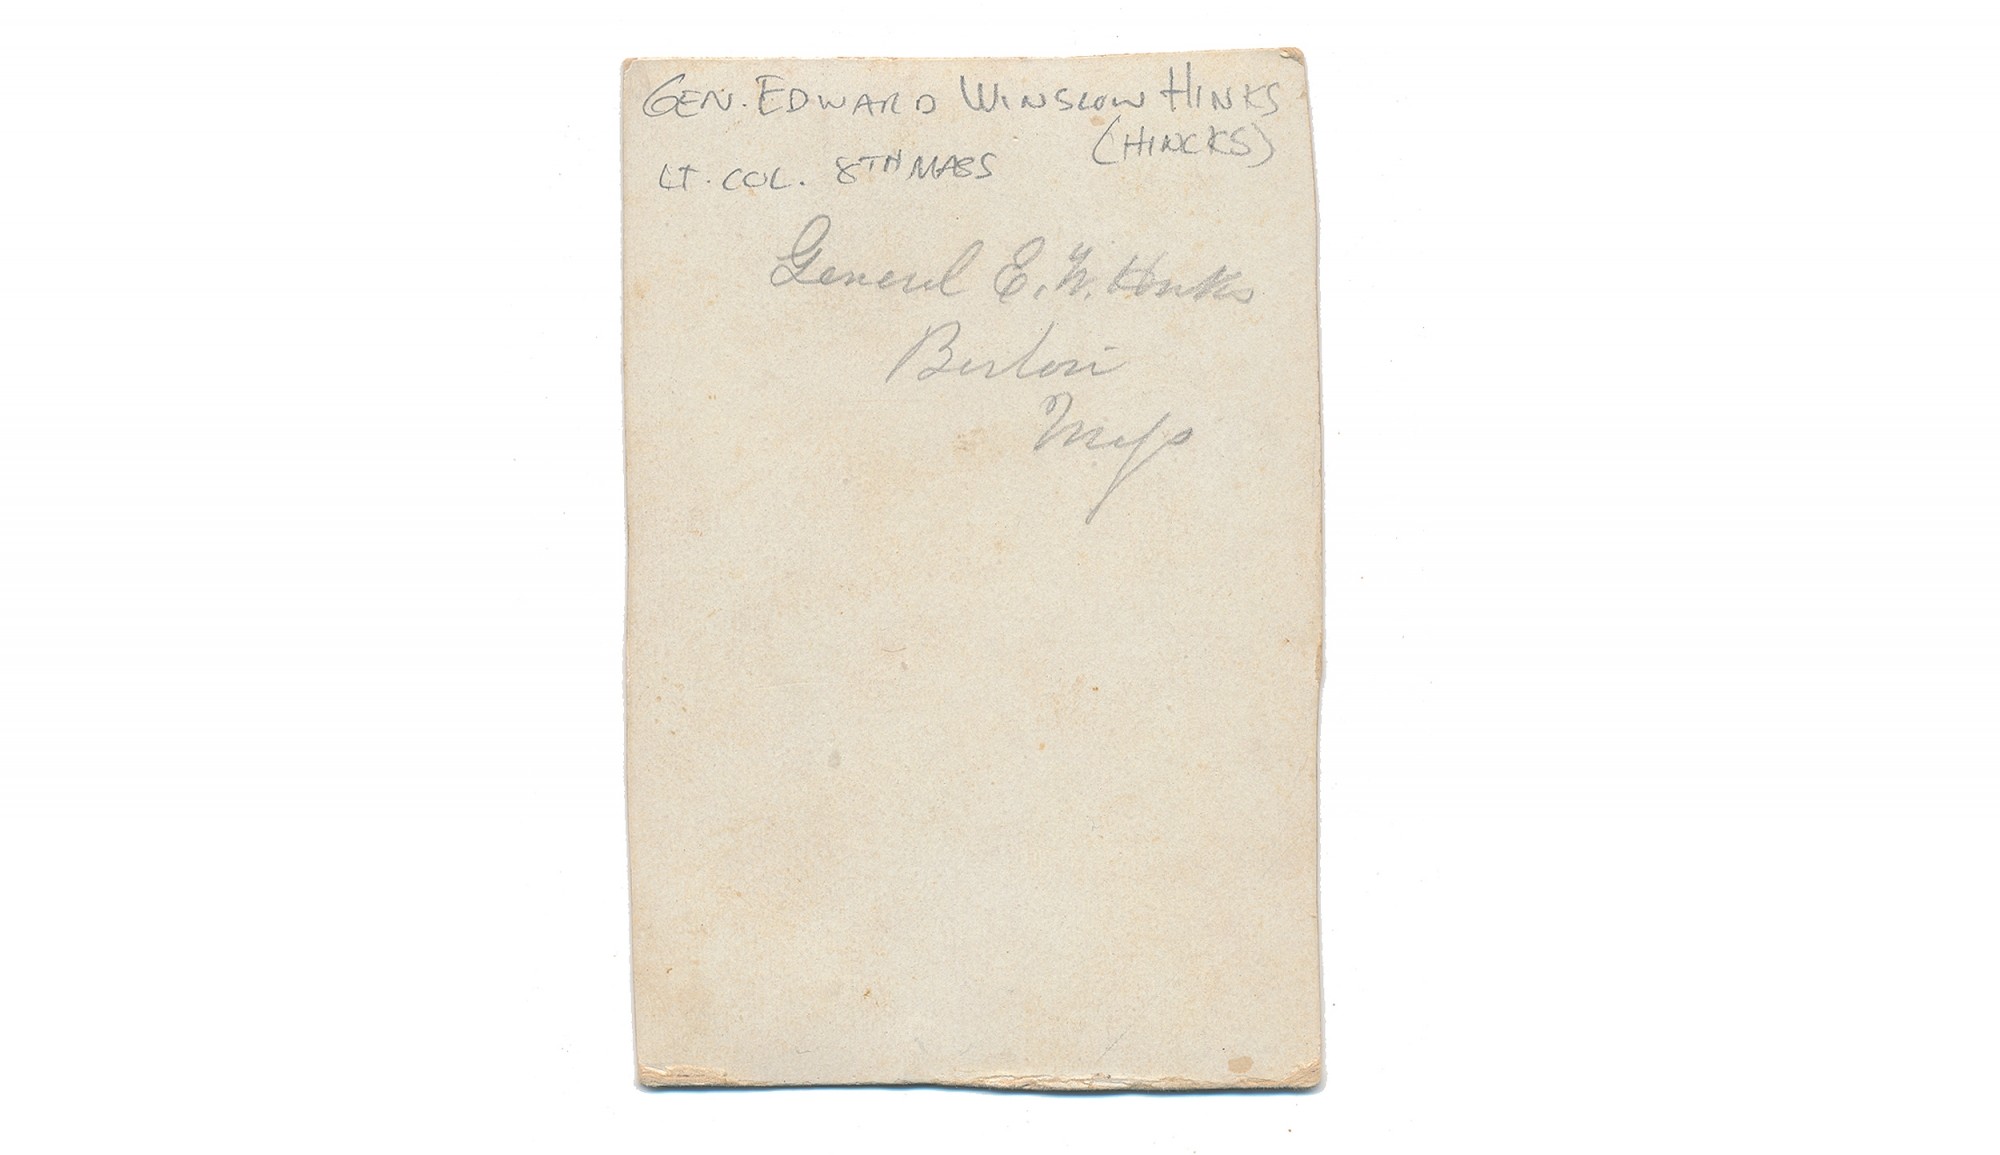 GEN. EDWARD WINSLOW HINKS
(HINCKS)
LT. COL. 8TH MASS
General E. W. Hinks
Boston
Mass